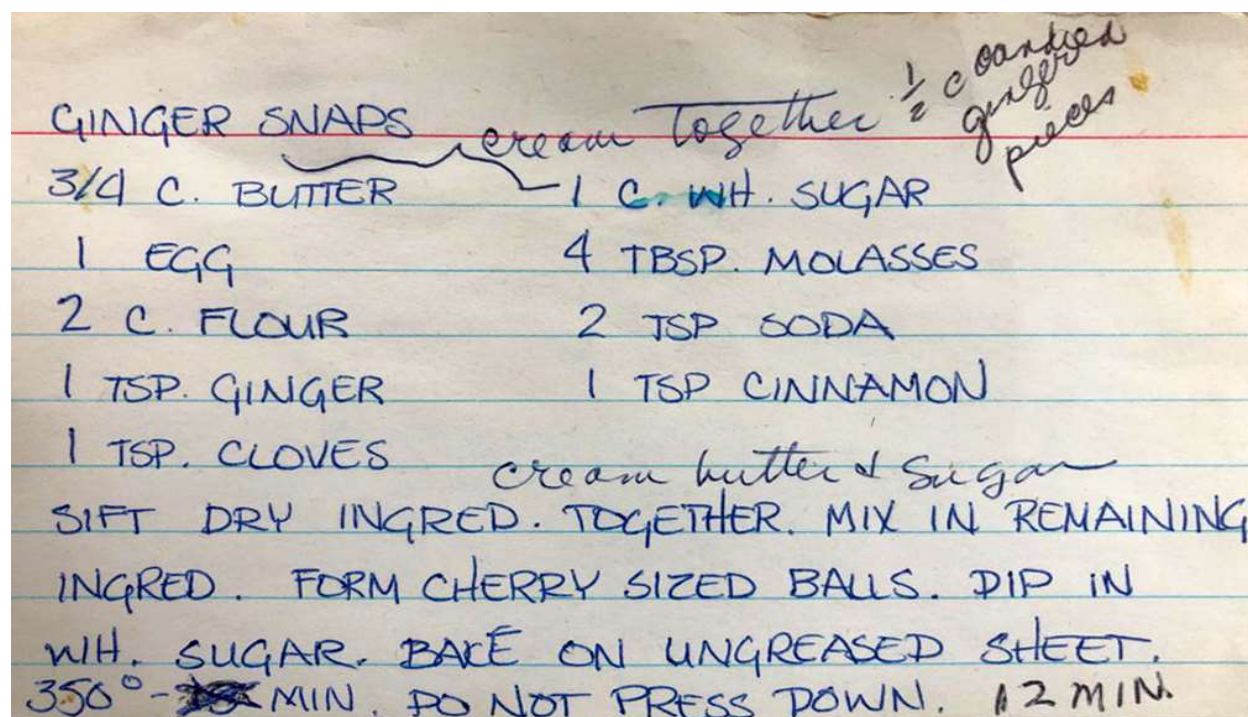 GINGER SNAPS cream Together 1/2 c candied
ginger
pieces
3/4 C. BUTTER 1 C. WH. SUGAR
1 EGG 4 TBSP. MOLASSES
2 C. FLOUR 2 TSP SODA
1 TSP. GINGER 1 TSP CINNAMON
1 TSP. CLOVES cream butter & Sugar
SIFT DRY INGRED. TOGETHER. MIX IN REMAINING
INGRED. FORM CHERRY SIZED BALLS. DIP IN
WH. SUGAR. BAKE ON UNGREASED SHEET.
350° - MIN. DO NOT PRESS DOWN. 12 MIN.